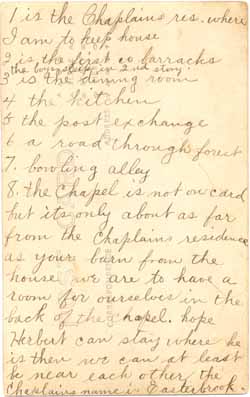 1 is the Chaplains res. where
I am to keep house
2 is the first co barracks
the boys sleep in 2nd story.
3 is the dining room
4 the kitchen
5 the post exchange
6 a road through forest
7. bowling alley
8. the chapel is not on card
but its only about as far
from the Chaplains residence
as your barn from the
house we are to have a
room for ourselves in the
back of the chapel. hope
Herbert can stay where he
is then we can at least
be near each other, the
Chaplains name is Easterbrook.